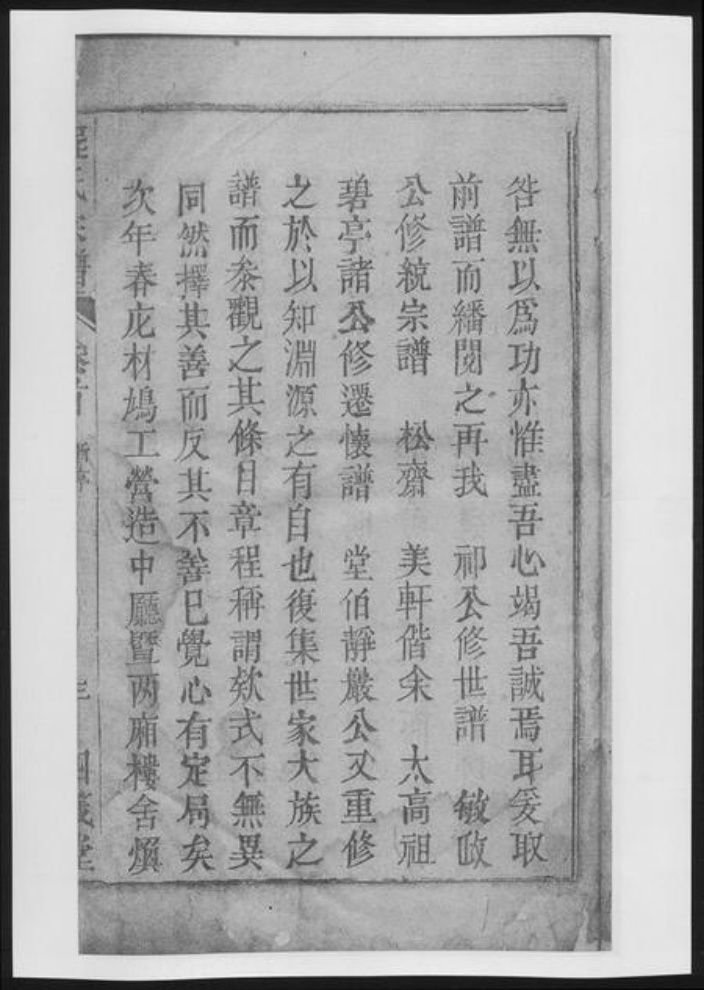 咎無以爲功亦惟盡吾心竭吾誠焉耳爰取
前譜而繙閱之再我 祁公修世譜 敏政
公修統宗譜 松齋 美軒偕余 太高祖
碧亭諸公修遷懷譜 堂伯靜嚴公又重修
之於以知淵源之有自也復集世家大族之
譜而叅觀之其條目章程稱謂欵式不無異
同然擇其善而反其不善已覺心有定局矣
次年春庀材鳩工營造中廳暨两廂樓舍煥
氏宗譜 卷首 新序 三